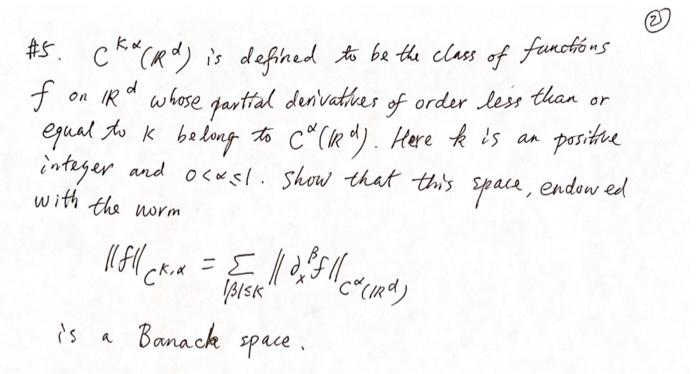 ②
#5. C^{k,α}(ℝ^d) is defined to be the class of functions
f on ℝ^d whose partial derivatives of order less than or
equal to k belong to C^α(ℝ^d). Here k is an positive
integer and 0<α≤1. Show that this space, endowed
with the norm
||f||_{C^{k,α}} = Σ_{|β|≤k} ||∂_x^β f||_{C^α(ℝ^d)}
is a Banach space.